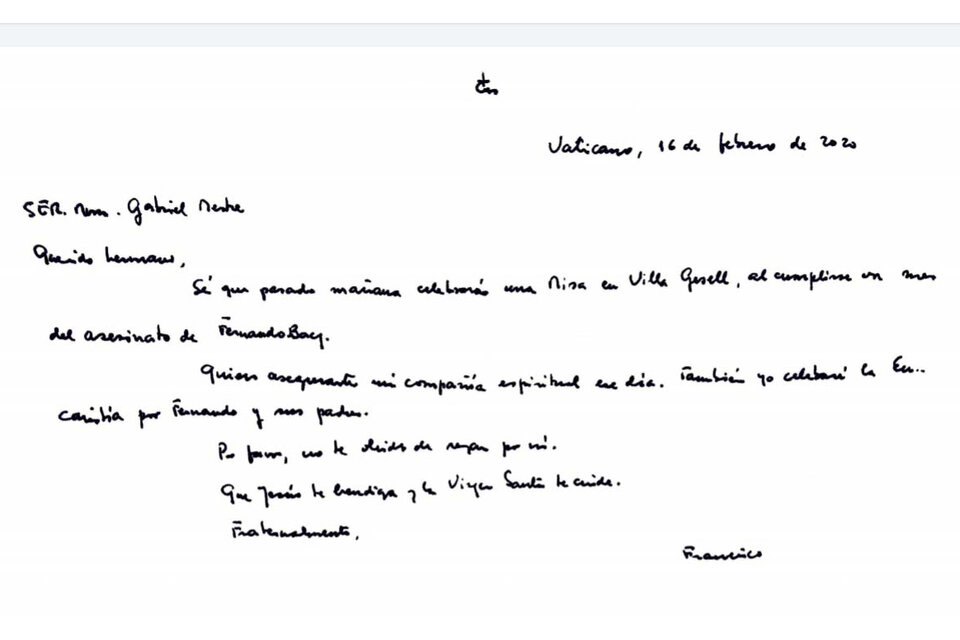 Vaticano, 16 de febrero de 2020
SER. Mons. Gabriel Mestre
Querido hermano,
Sé que pasado mañana celebrarás una Misa en Villa Gesell, al cumplirse un mes
del asesinato de Fernando Baez.
Quiero asegurarte mi compañía espiritual ese día. También yo celebraré la Eu-
caristía por Fernando y sus padres.
Por favor, no te olvides de rezar por mí.
Que Jesús te bendiga y la Virgen Santa te cuide.
Fraternalmente,
Francisco